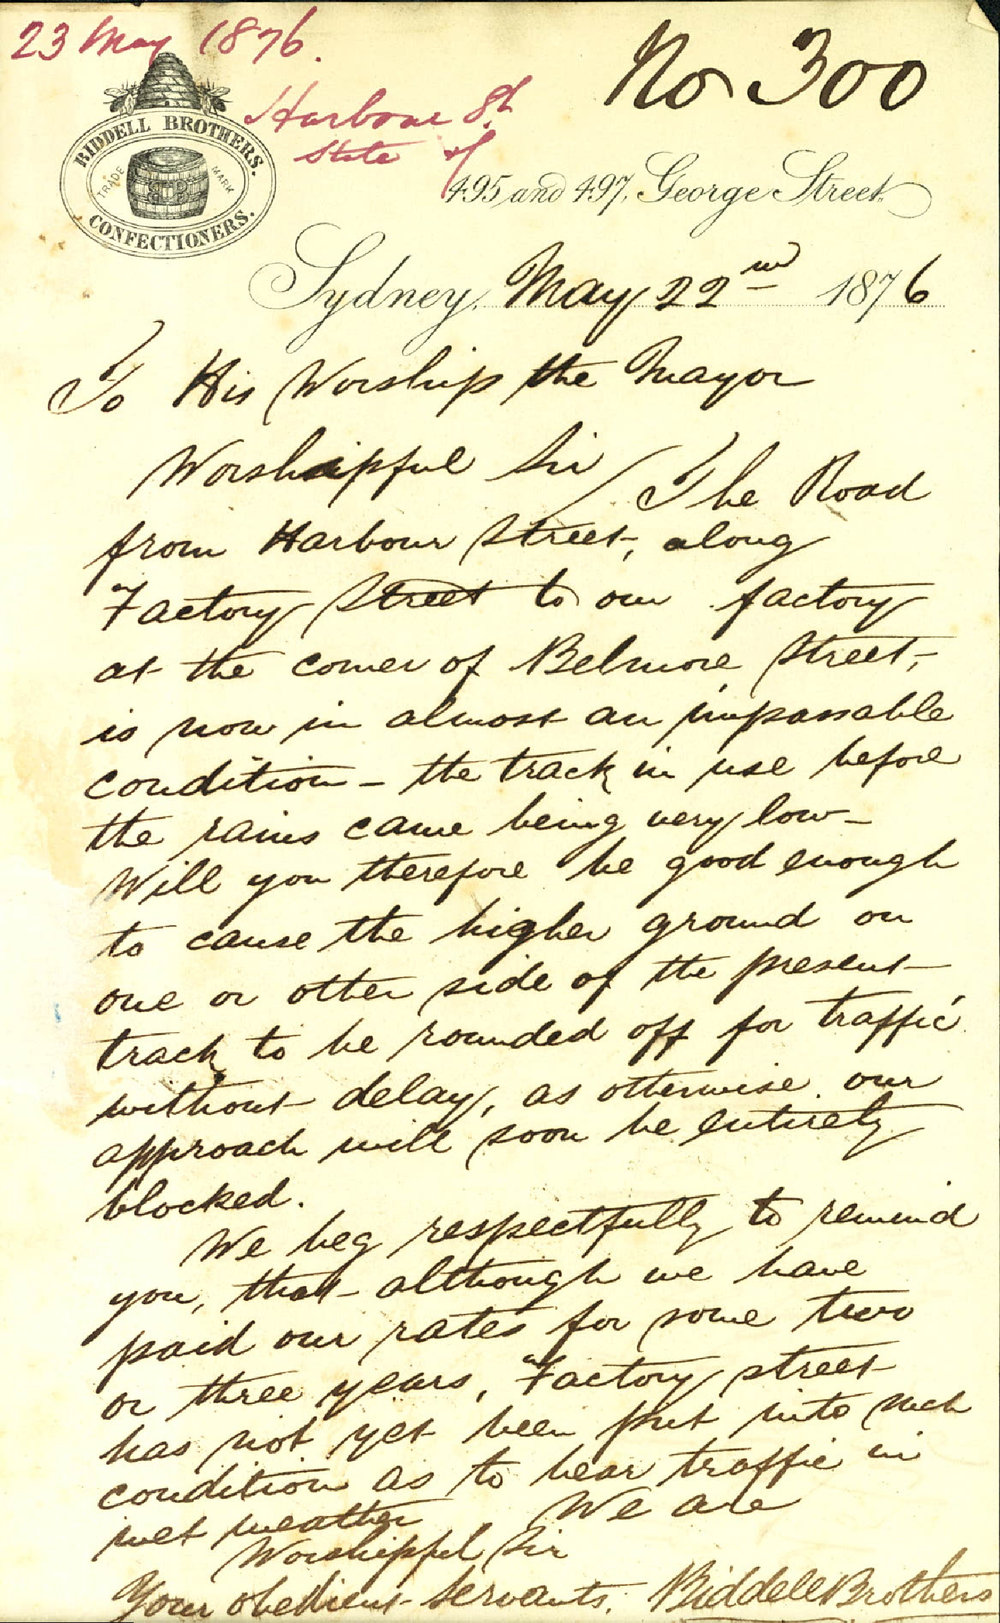 23 May 1876.
No 300
Harbour St
State of
BIDDELL BROTHERS.
TRADE MARK
BB
CONFECTIONERS.
495 and 497, George Street.
Sydney, May 22nd 1876
To His Worship the Mayor
Worshipful Sir / The Road
from Harbour Street, along
Factory Street to our factory
at the corner of Belmore Street,
is now in almost an impassable
condition - the track in use before
the rains came being very low -
Will you therefore be good enough
to cause the higher ground on
one or other side of the present
track to be rounded off for traffic
without delay, as otherwise our
approach will soon be entirely
blocked.
We beg respectfully to remind
you, that although we have
paid our rates for some two
or three years, "Factory street
has not yet been put into such
condition as to bear traffic in
wet weather We are
Worshipful Sir
Your obedient servants. Biddell Brothers